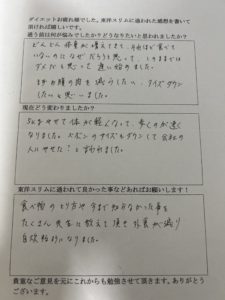 ダイエットお疲れ様でした。東洋スリムに通われた感想を書いて
頂ければ嬉しいです。
通う前は何が悩みでしたか?どうなりたいと思われましたか?
どんどん体重が増えてきて、今ほど食べて
いないのになぜだろうと思って、このままでは
ダメだと思って通い始めました。
上半身の肉を減らしたい、サイズダウン
したいと思いました。
現在どう変わりましたか?
5kgやせて体が軽くなって、歩くのが速く
なりました。ズボンのサイズもダウンして会社の
人にやせた?と言われました。
東洋スリムに通われて良かった事などあればお願いします!
食べ物のとり方や今まで知らなかった事を
たくさん先生に教えて頂き外食が減り
自炊するようになりました。
貴重なご意見を元にこれからも勉強させて頂きます。ありがとう
ございます。